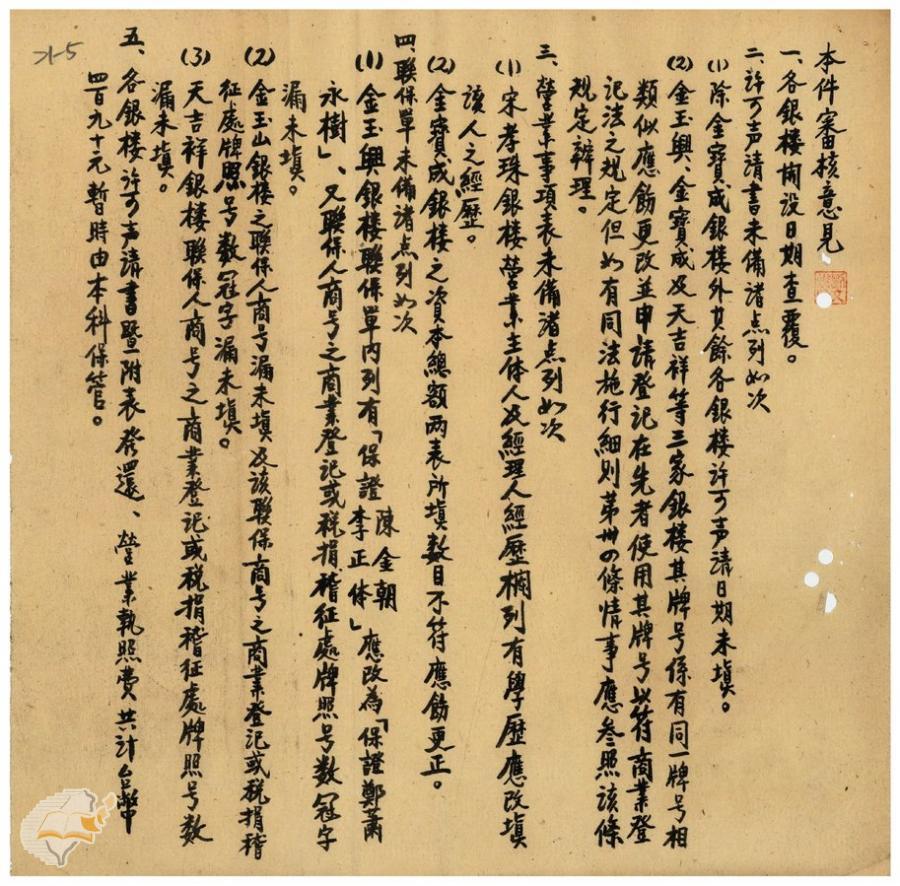 本件審核意見
一、各銀楼開設日期查覆。
二、許可声請書未備諸点列如次
(1)除金寶成銀楼外其餘各銀楼許可声請日期未塡。
(2)金玉興、金寶成及天吉祥等三家銀楼其牌号係有同一牌号相
類似應飭更改並申請登記在先者使用其牌号以符商業登
記法之規定但如有同法施行細則第卅四條情事應叁照該條
規定辦理。
三、營業事項表未備諸点列如次
(1)宋孝珠銀楼營業主体人及經理人經歷欄列有學歷應改塡
該人之經歷。
(2)金寶成銀楼之資本總額两表所塡数目不符應飭更正。
四、聯保單未備諸点列如次
(1)金玉興銀楼聯保單内列有「保證陳金朝李正体」應改為「保證鄭萧
永樹」、又聯保人商号之商業登記或税捐稽征處牌照号数冠字
漏未塡。
(2)金玉山銀楼之聯保人商号漏未塡及該聯保商号之商業登记或税捐稽
征處牌照号数冠字漏未塡。
(3)天吉祥銀楼聯保人商号之商業登记或税捐稽征處牌照号数
漏未塡。
五、各銀楼許可声請書暨附表發還、營業執照費共計台幣
四百九十元暫時由本科保管。